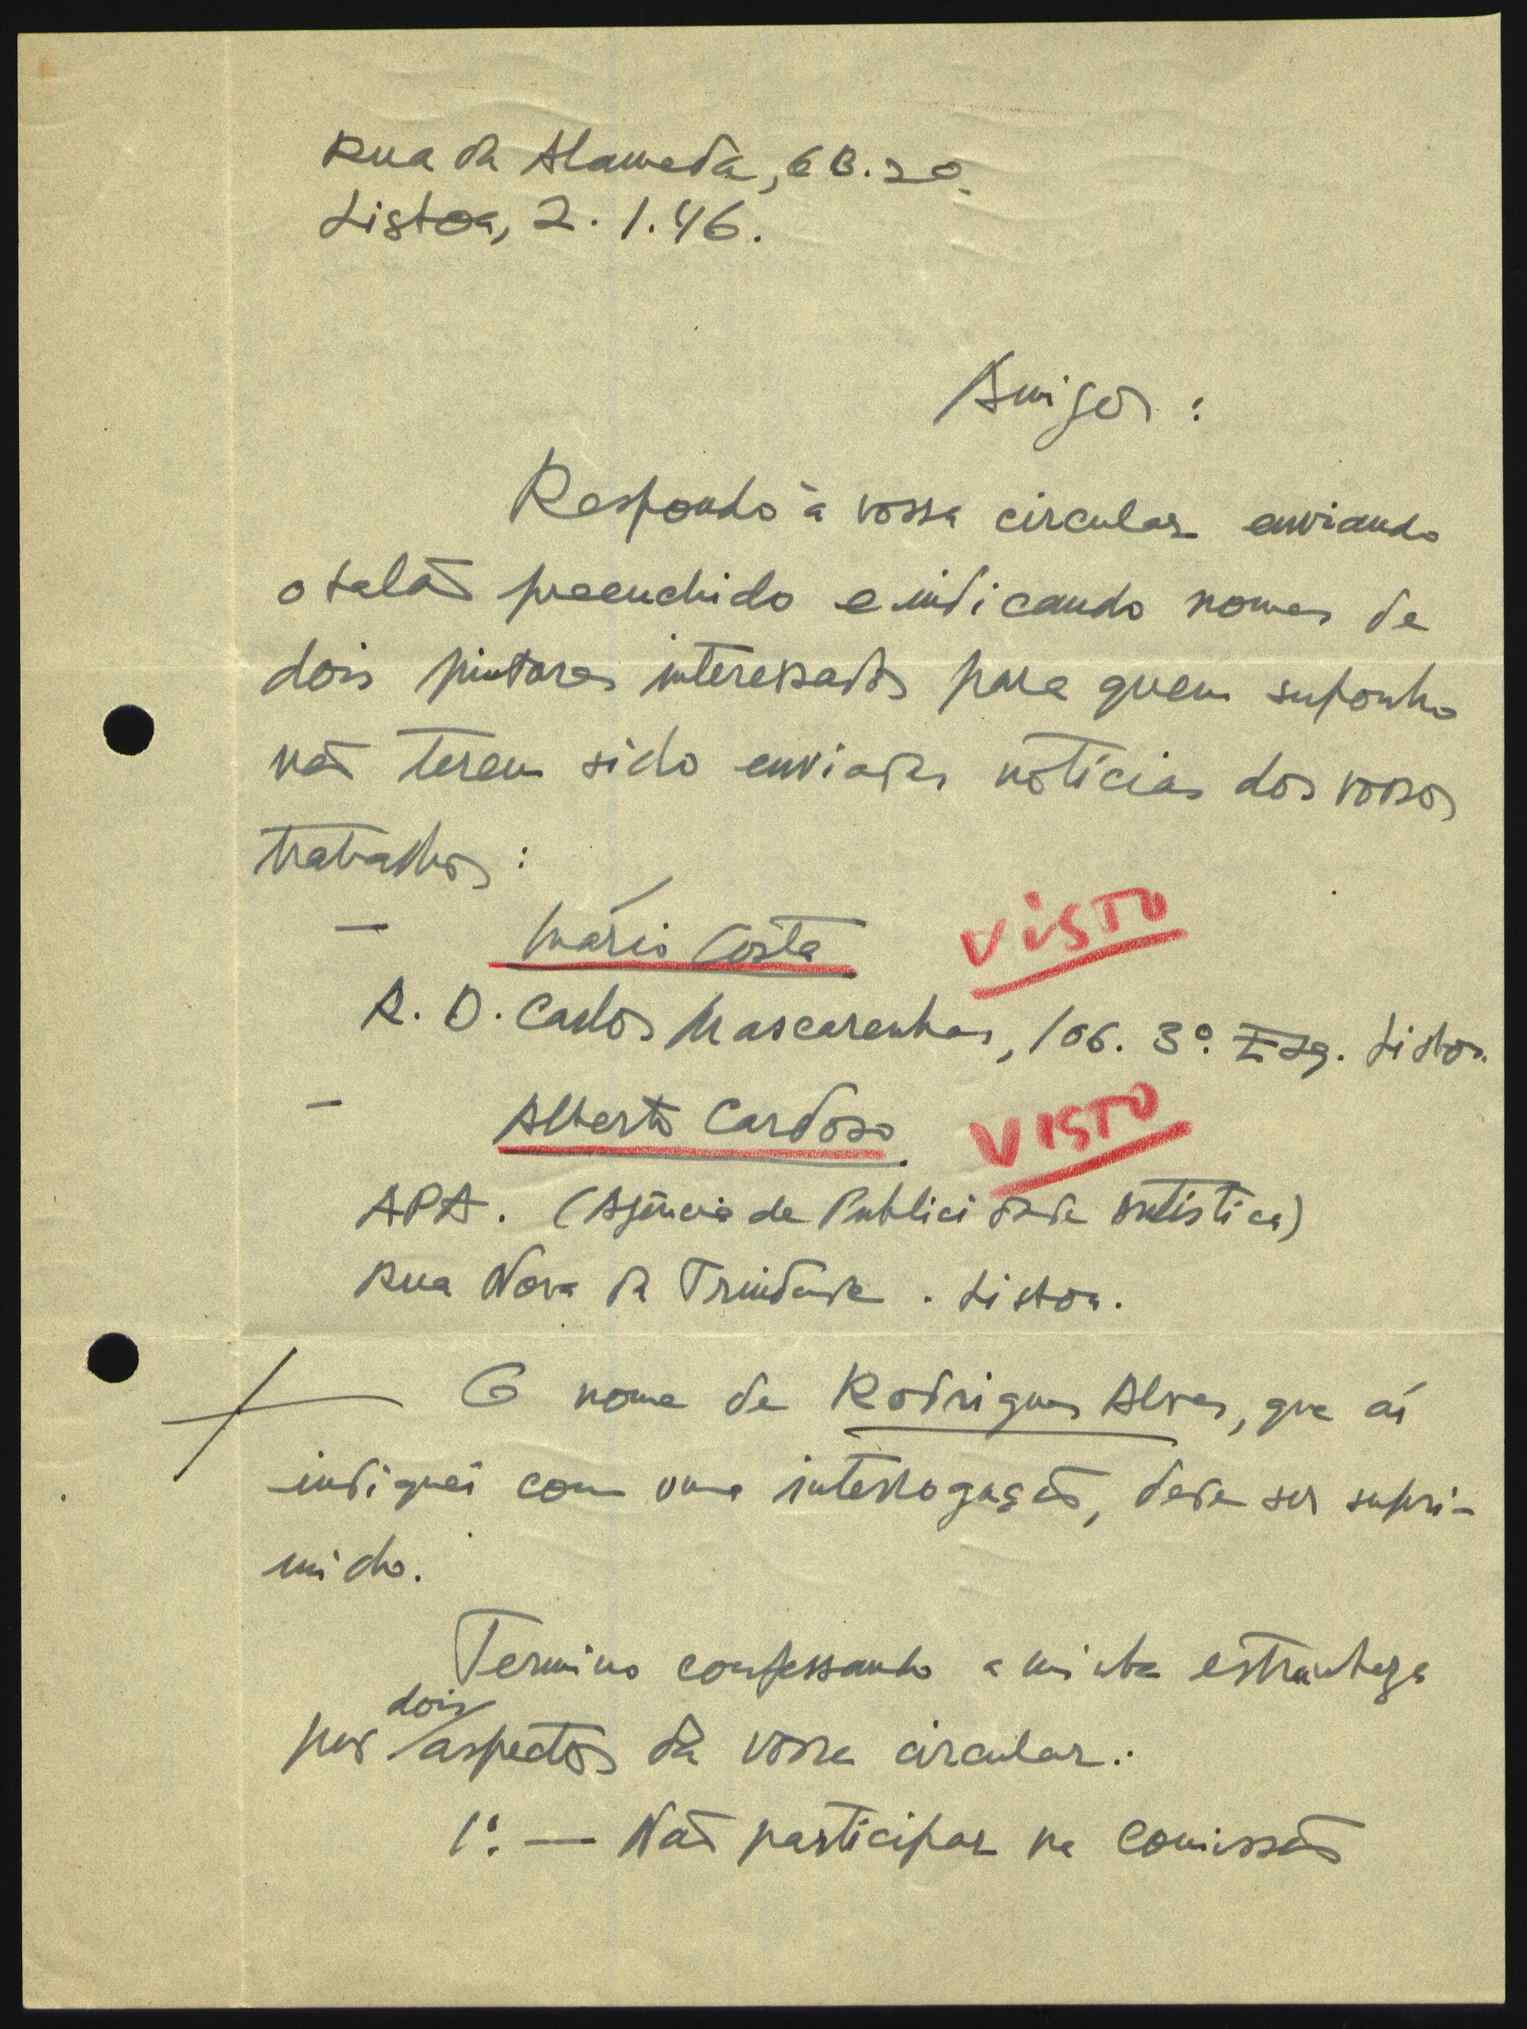 Rua da Alameda, 6B. 2o.
Lisboa, 2.1.46.
Amigos:
Respondo à vossa circular enviando
o talão preenchido e indicando nomes de
dois pintores interessados para quem suponho
não terem sido enviadas notícias dos vossos
trabalhos:
— Mário Costa VISTO
R. D. Carlos Mascarenhas, 106. 3º. Esq. Lisboa.
— Alberto Cardoso. VISTO
APA. (Agência de Publicidade Artística)
Rua Nova da Trindade. Lisboa.
O nome de Rodrigues Alves, que aí
indiquei com uma interrogação, deve ser supri-
mido.
Termino confessando a minha estranheza
por dois aspectos da vossa circular:
1º. — Não participar na Comissão